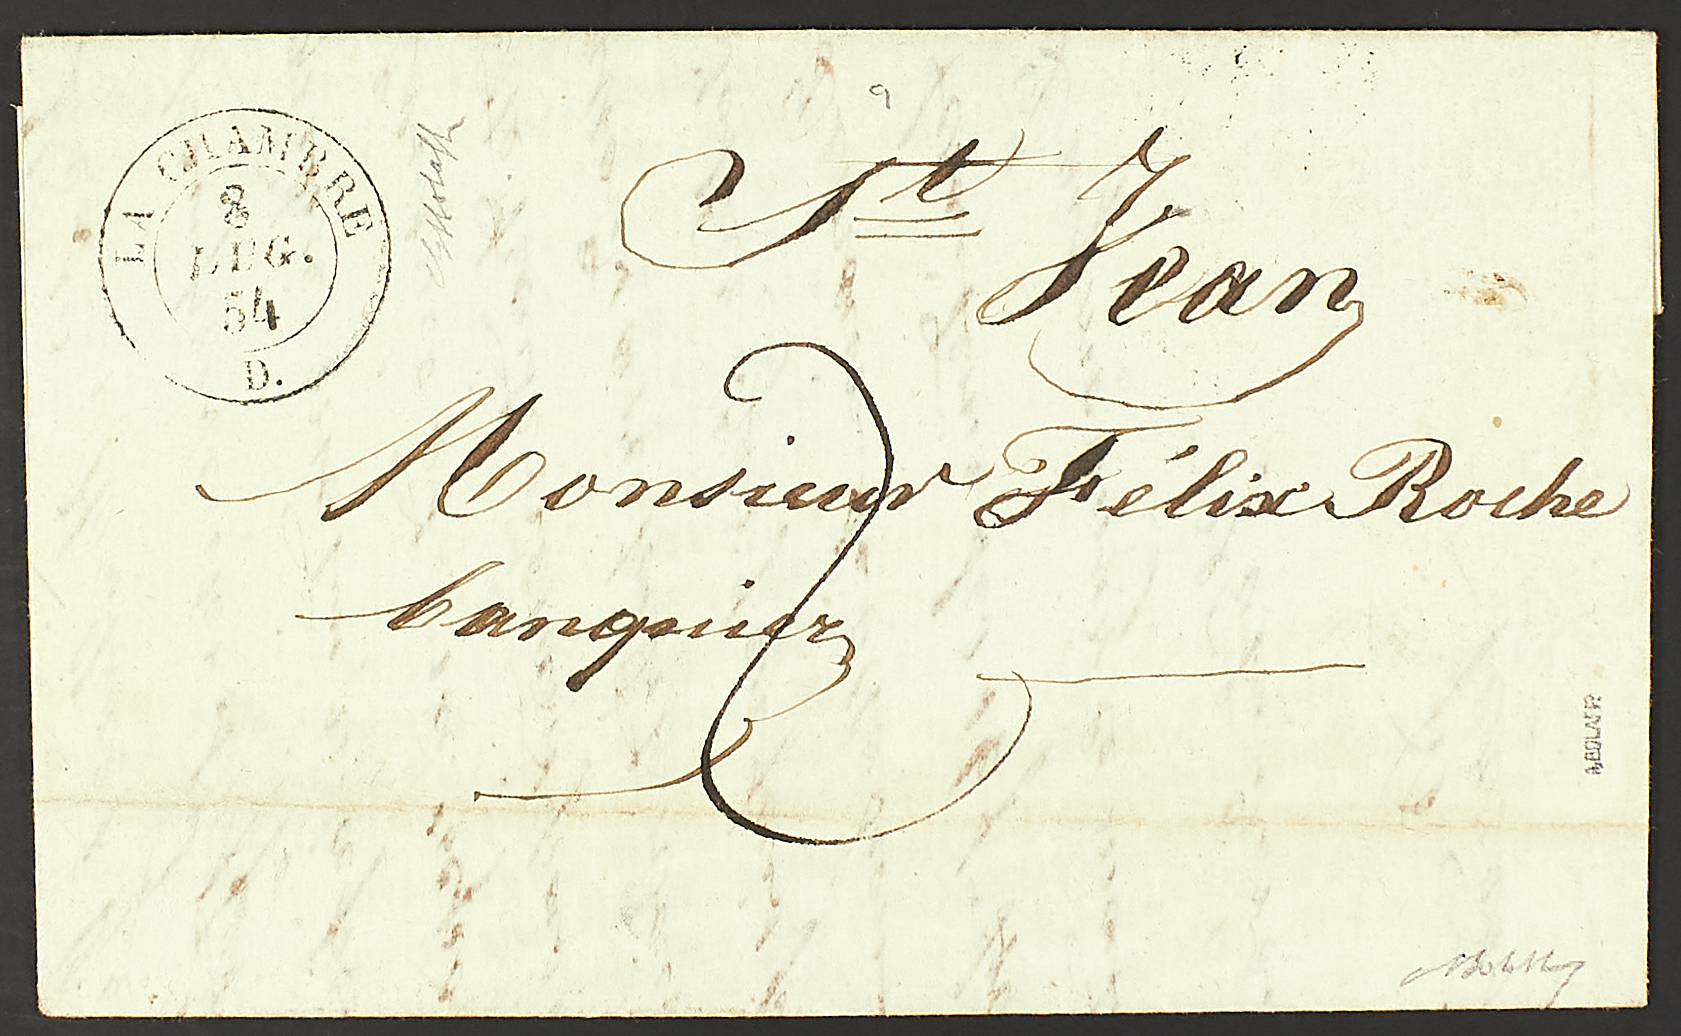 LA CHAMBRE
8
LUG.
54
D.
9
St Jean
Monsieur Félix Roche
banquier
2